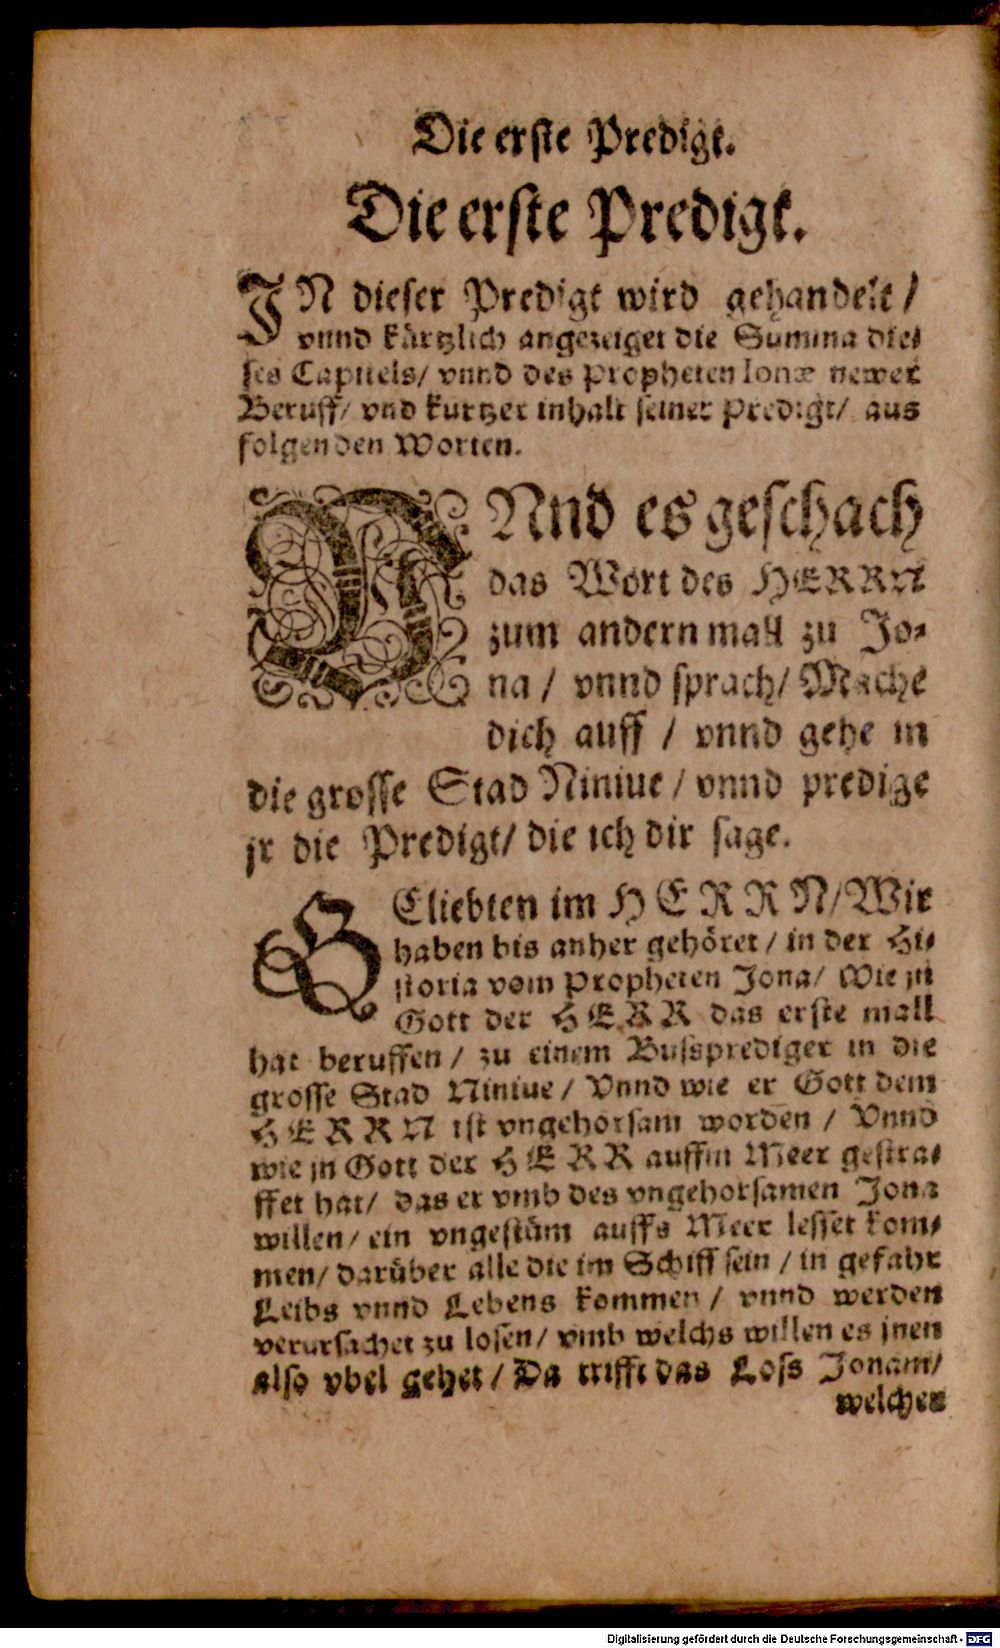 Die erste Predigt.
Die erste Predigt.
IN dieser Predigt wird gehandelt /
vnnd kürtzlich angezeiget die Summa die⸗
ses Capitels/ vnnd des Propheten Ionæ newer
Beruff/ vnd kurtzer inhalt seiner Predigt/ aus
folgenden Worten.
VNnd es geschach
das Wort des HERRN
zum andern mall zu Jo⸗
na / vnnd sprach/ Mache
dich auff / vnnd gehe in
die grosse Stad Niniue / vnnd predige
jr die Predigt/ die ich dir sage.
GEliebten im HERRN/ Wir
haben bis anher gehöret / in der Hi⸗
storia vom Propheten Jona/ Wie jn
Gott der HERR das erste mall
hat beruffen / zu einem Bussprediger in die
grosse Stad Niniue / Vnnd wie er Gott dem
HERRN ist vngehorsam worden / Vnnd
wie jn Gott der HERR auffm Meer gestra⸗
ffet hat/ das er vmb des vngehorsamen Jona
willen/ ein vngestüm auffs Meer lesset kom⸗
men/ darüber alle die im Schiff sein / in gefahr
Leibs vnnd Lebens kommen / vnnd werden
verursachet zu losen/ vmb welchs willen es jnen
also vbel gehet / Da trifft das Loss Jonam/
welcher
Digitalisierung gefördert durch die Deutsche Forschungsgemeinschaft - DFG